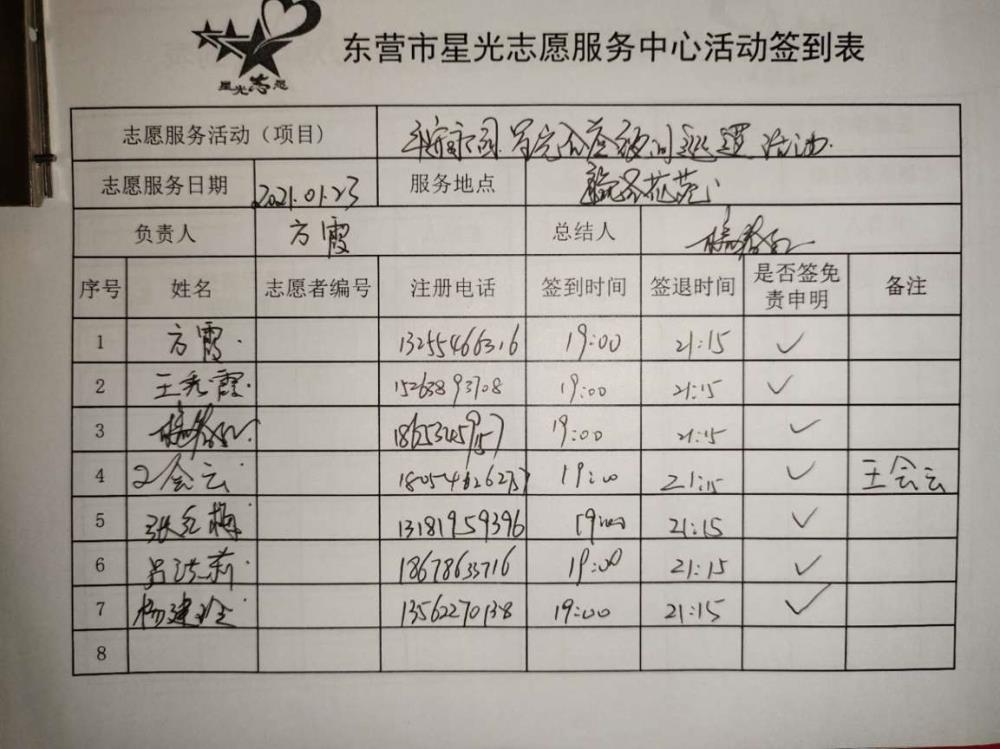 星光志愿
东营市星光志愿服务中心活动签到表
志愿服务活动（项目） 活动.
志愿服务日期 2021.01.23 服务地点
负责人 方霞 总结人
序号 姓名 志愿者编号 注册电话 签到时间 签退时间 是否签免责申明 备注
1 方霞. 13255466316 19:00 21:15 ✓
2 王秀霞. 15263893708 19:00 21:15 ✓
3 19:00 21:15 ✓
4 王会云 19:00 21:15 ✓ 王会云
5 张红梅 13181959396 19:00 21:15 ✓
6 吕洪莉 18678633716 19:00 21:15 ✓
7 13562270138 19:00 21:15 ✓
8